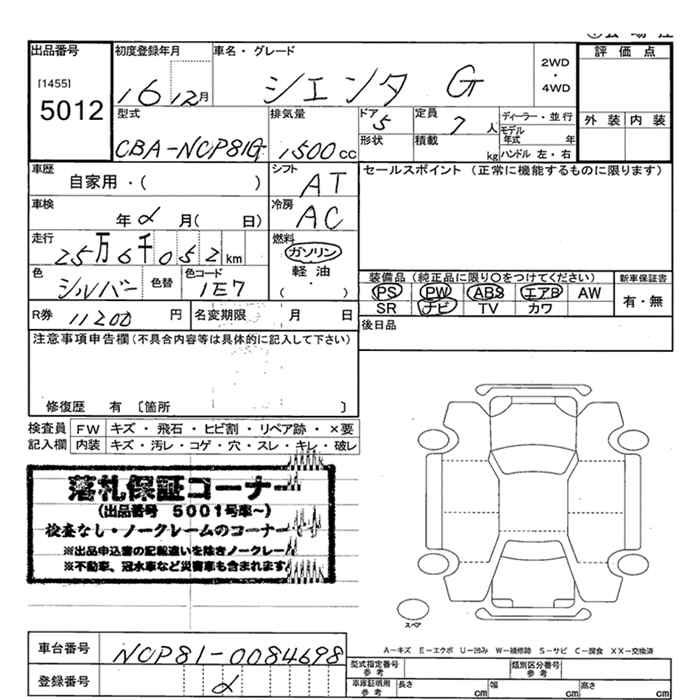 出品番号 初度登録年月 車名・グレード 評価点
[1455] 2WD
5012 16 12月 シエンタ G ・
4WD
型式 排気量 ドア 5 定員 7 人 ディーラー・並行 外装 内装
CBA-NCP81G 1,500cc 形状 積載 kg モデル年式 年
ハンドル 左・右
車歴 シフト セールスポイント (正常に機能するものに限ります)
自家用・( ) AT
車検 冷房
年 2 月( 日) AC
走行 燃料
25万6千052km ガソリン
色 色替 色コード 軽油 装備品(純正品に限り○をつけてください) 新車保証書
シルバー 1E7 ( ・ ) PS PW ABS エアB AW 有・無
SR ナビ TV カワ
R券 11200 円 名変期限 月 日 後日品
注意事項申告欄(不具合内容等は具体的に記入して下さい)
修復歴 有 〔箇所 〕
検査員 FW キズ・飛石・ヒビ割・リペア跡・×要
記入欄 内装 キズ・汚レ・コゲ・穴・スレ・キレ・破レ
落札保証コーナー
(出品番号 5001号車~)
検査なし・ノークレームのコーナー
※出品申込書の記載違いを除きノークレーム
※不動車、冠水車など災害車も含まれます
スペア
A-キズ E-エクボ U-凹み W-補修跡 S-サビ C-腐食 XX-交換済
車台番号 NCP81-0084698 型式指定番号 参考 類別区分番号 参考
登録番号 2 車庫証明用 参考 長さ cm 幅 cm 高さ cm